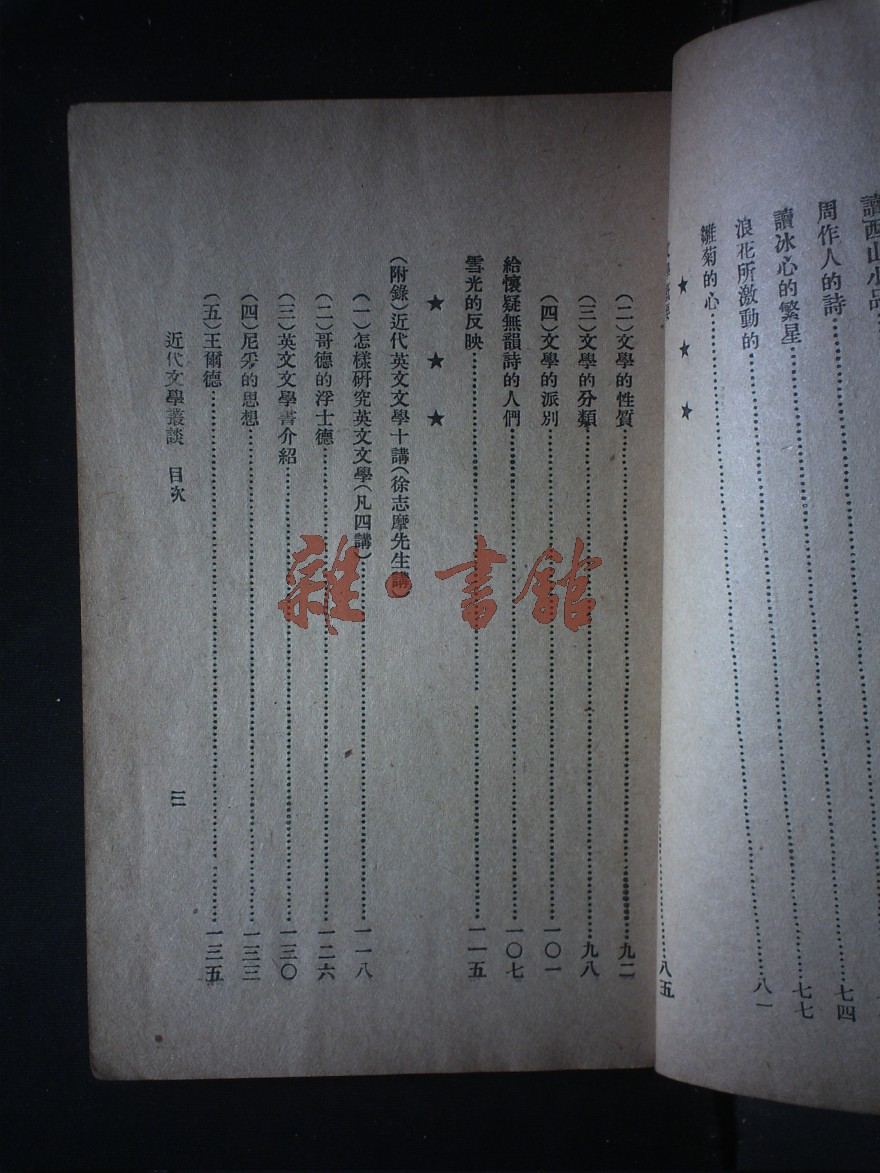 讀西山小品
周作人的詩……七四
讀冰心的繁星……七七
浪花所激動的……八一
雛菊的心……八五
★ ★ ★
(二)文學的性質……九二
(三)文學的分類……九八
(四)文學的派別……一〇一
給懷疑無韻詩的人們……一〇七
雪光的反映……一一五
★ ★ ★
(附錄)近代英文文學十講(徐志摩先生講)
(一)怎樣研究英文文學(凡四講)……一一八
(二)哥德的浮士德……一二六
(三)英文文學書介紹……一三〇
(四)尼采的思想……一三三
(五)王爾德……一三五
近代文學叢談 目次
三
雜·書館